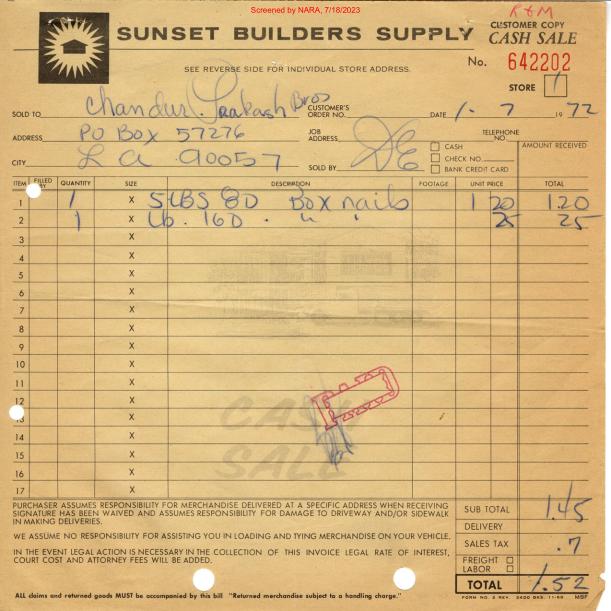 Screened by NARA, 7/18/2023
R&M
SUNSET BUILDERS SUPPLY
CUSTOMER COPY
CASH SALE
SEE REVERSE SIDE FOR INDIVIDUAL STORE ADDRESS.
No. 642202
STORE 1
SOLD TO Chandur Prakash Bros
CUSTOMER'S ORDER NO.
DATE 1-7 1972
ADDRESS PO Box 57276
JOB ADDRESS
TELEPHONE NO.
CITY LA 90057
SOLD BY
CASH
CHECK NO.
BANK CREDIT CARD
AMOUNT RECEIVED
ITEM FILLED BY QUANTITY SIZE DESCRIPTION FOOTAGE UNIT PRICE TOTAL
1 1 X 5 LBS 8D Box nails 1 20 1.20
2 1 X Lb. 16D . " " 25 25
3 X
4 X
5 X
6 X
7 X
8 X
9 X
10 X
11 X
12 X
13 X
14 X
15 X
16 X
17 X
CASH
SALE
PURCHASER ASSUMES RESPONSIBILITY FOR MERCHANDISE DELIVERED AT A SPECIFIC ADDRESS WHEN RECEIVING
SIGNATURE HAS BEEN WAIVED AND ASSUMES RESPONSIBILITY FOR DAMAGE TO DRIVEWAY AND/OR SIDEWALK
IN MAKING DELIVERIES.
WE ASSUME NO RESPONSIBILITY FOR ASSISTING YOU IN LOADING AND TYING MERCHANDISE ON YOUR VEHICLE.
IN THE EVENT LEGAL ACTION IS NECESSARY IN THE COLLECTION OF THIS INVOICE LEGAL RATE OF INTEREST,
COURT COST AND ATTORNEY FEES WILL BE ADDED.
SUB TOTAL 1.45
DELIVERY
SALES TAX .7
FREIGHT
LABOR
TOTAL 1.52
ALL claims and returned goods MUST be accompanied by this bill "Returned merchandise subject to a handling charge."